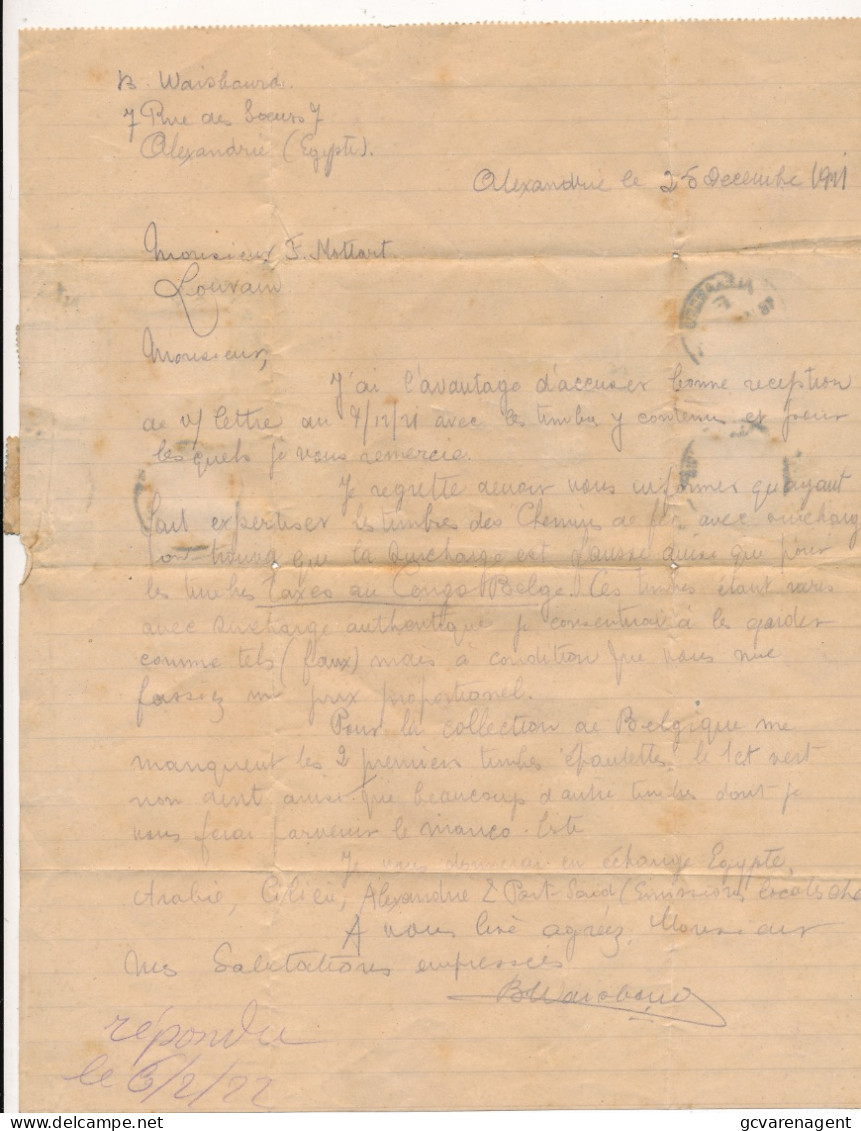 B. Waisbaurd.
7 Rue des Soeurs 7
Alexandrie (Egypte).
Alexandrie le 25 Decembre 1921
Monsieur F. Nottart.
Louvain
Monsieur,
J'ai l'avantage d'accuser bonne reception
de v/ lettre du 9/12/21 avec les timbres y contenus et pour
lesquels je vous remercie.
Je regrette devoir vous informer qu'ayant
fait expertiser les timbres des Chemins de fer avec surcharge
trouvé que la surcharge est fausse ainsi que pour
les timbres taxes du Congo Belge. Ces timbres étant rares
avec surcharge authentique je consentirai à les garder
comme tels (faux) mais à condition que vous me
fassiez un prix proportionel.
Pour la collection de Belgique me
manquent les 2 premiers timbres épaulettes, le 1ct vert
non dent ainsi que beaucoup d'autre timbres dont je
vous ferai parvenir le manco-liste
Je vous donnerai en échange Egypte,
Arabie, Cilicie, Alexandrie & Port-Said (Emissions locales
A vous lire agréez, Monsieur
mes Salutations empressées
BWaisbaurd
répondu
le 6/2/22
gcvarenagent